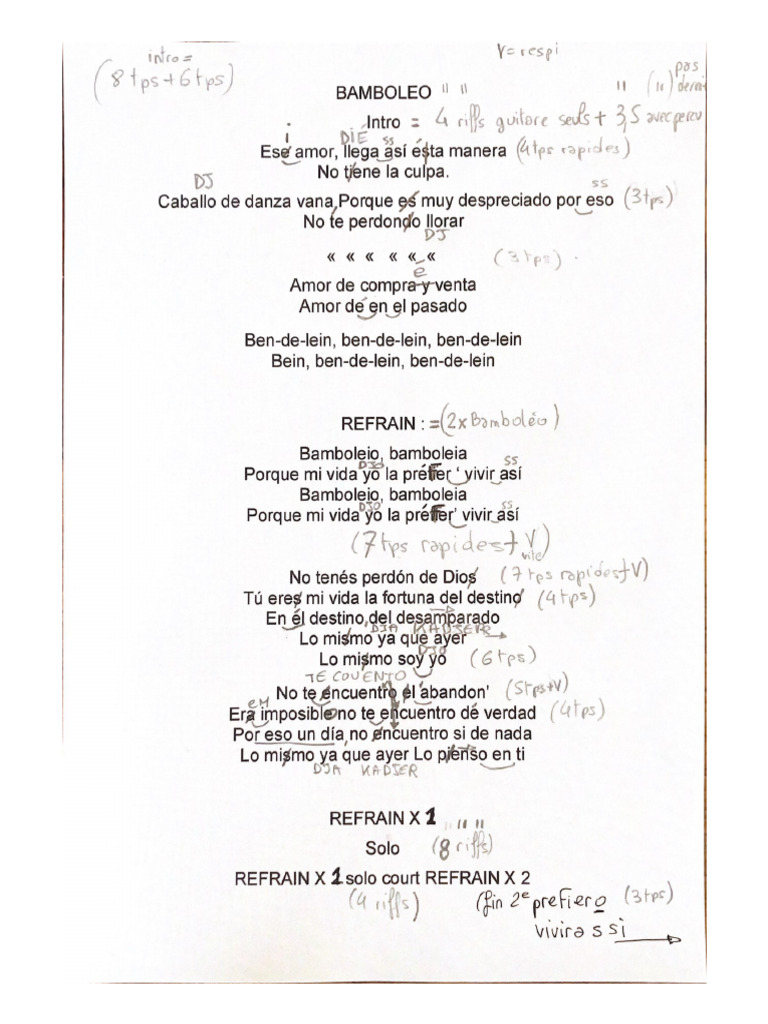 intro =
V= respi
(8 tps + 6 tps)
BAMBOLEO " "
" (") pas
Intro = 4 riffs guitare seuls + 3,5 avec percu
i DIE ss
Ese amor, llega así ésta manera (4 tps rapides)
No tiene la culpa.
DJ ss
Caballo de danza vana Porque es muy despreciado por eso (3 tps)
No te perdondo llorar
DJ
« « « « « « (3 tps)
é
Amor de compra y venta
Amor de en el pasado
Ben-de-lein, ben-de-lein, ben-de-lein
Bein, ben-de-lein, ben-de-lein
REFRAIN : =(2x Bamboléo)
Bamboleio, bamboleia
DJO ss
Porque mi vida yo la préfer ' vivir así
Bamboleio, bamboleia
DJO ss
Porque mi vida yo la préfer' vivir así
(7 tps rapides + V vite)
No tenés perdón de Dios (7 tps rapides + V)
Tú eres mi vida la fortuna del destino (4 tps)
En él destino del desamparado
DJA KADJER
Lo mismo ya que ayer
DJO
Lo mismo soy yo (6 tps)
TE COUENTO
No te encuentro él abandon' (5 tps+V)
em
Era imposible no te encuentro dé verdad (4 tps)
Por eso un día no encuentro si de nada
Lo mismo ya que ayer Lo pienso en ti
DJA KADJER
REFRAIN X 1 " " "
Solo (8 riffs)
REFRAIN X 1 solo court REFRAIN X 2
(4 riffs) (fin 2e prefiero (3 tps)
vivira s si